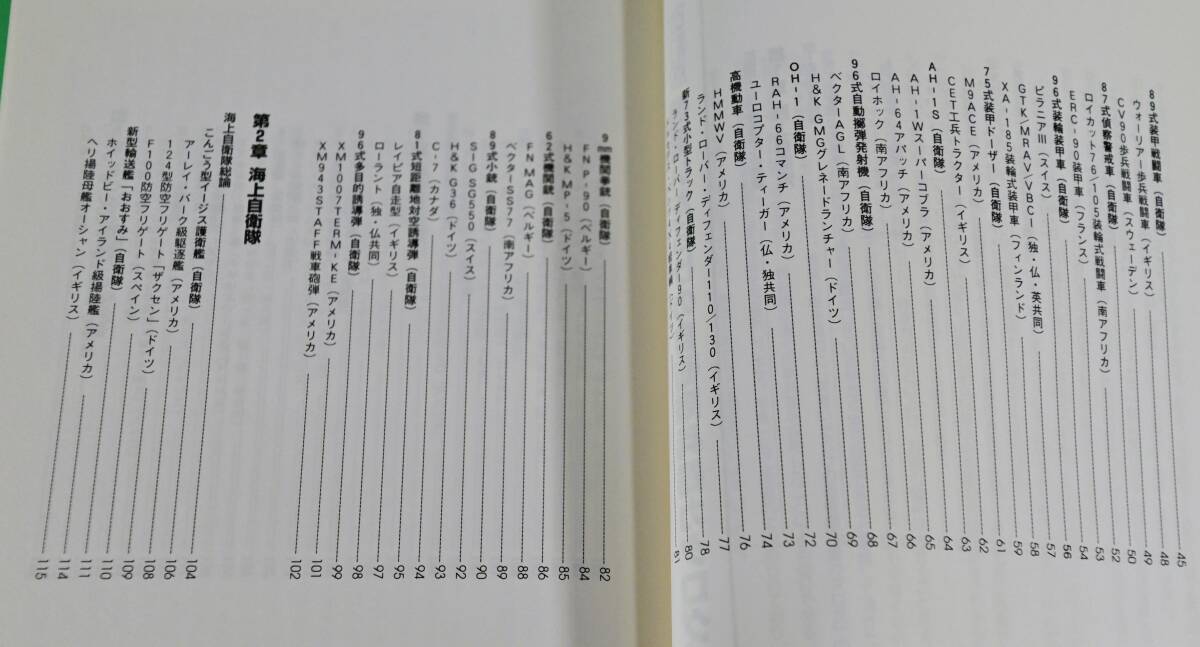 89式装甲戦闘車（自衛隊） 45
ウォーリアー歩兵戦闘車（イギリス） 48
CV90歩兵戦闘車（スウェーデン） 49
87式偵察警戒車（自衛隊） 50
ロイカット76/105装輪式戦闘車（南アフリカ） 52
ERC-90装甲車（フランス） 53
96式装輪装甲車（自衛隊） 54
ピラニアIII（スイス） 56
GTK/MRAV/VBCI（独・仏・英共同） 57
XA-185装輪式装甲車（フィンランド） 58
75式装甲ドーザー（自衛隊） 59
M9ACE（アメリカ） 61
CET工兵トラクター（イギリス） 62
AH-1S（自衛隊） 63
AH-1Wスーパーコブラ（アメリカ） 64
AH-64アパッチ（アメリカ） 65
ロイホック（南アフリカ） 66
96式自動擲弾発射機（自衛隊） 67
ベクターAGL（南アフリカ） 68
H&K GMGグレネードランチャー（ドイツ） 69
OH-1（自衛隊） 70
RAH-66コマンチ（アメリカ） 72
ユーロコプター・ティーガー（仏・独共同） 73
高機動車（自衛隊） 74
HMMWV（アメリカ） 76
ランド・ローバー・ディフェンダー110/130（イギリス） 77
新73式小型トラック（自衛隊） 78
ランド・ローバー・ディフェンダー90（イギリス） 80
81
9mm機関拳銃（自衛隊） 82
FN P-90（ベルギー） 84
H&K MP-5（ドイツ） 85
62式機関銃（自衛隊） 86
FN MAG（ベルギー） 88
ベクターSS77（南アフリカ） 89
89式小銃（自衛隊） 90
SIG SG550（スイス） 92
H&K G36（ドイツ） 93
C-7（カナダ） 94
81式短距離地対空誘導弾（自衛隊） 95
レイピア自走型（イギリス） 97
ローラント（独・仏共同） 98
96式多目的誘導弾（自衛隊） 99
XM1007TERM-KE（アメリカ） 101
XM943STAFF戦車砲弾（アメリカ） 102
第2章 海上自衛隊
海上自衛隊総論 104
こんごう型イージス護衛艦（自衛隊） 106
アーレイ・バーク級駆逐艦（アメリカ） 108
124型防空フリゲート「ザクセン」（ドイツ） 109
F100防空フリゲート（スペイン） 110
新型輸送艦「おおすみ」（自衛隊） 111
ホイッドビー・アイランド級揚陸艦（アメリカ） 114
ヘリ揚陸母艦オーシャン（イギリス） 115